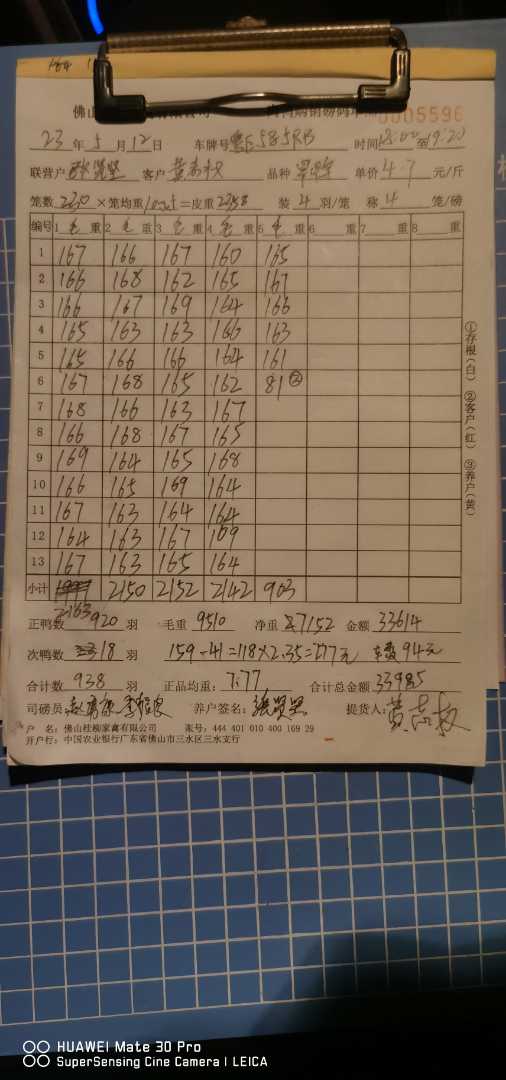 184
佛山
0005596
23年5月12日 车牌号 585 时间18:00至19:20
联营户 客户 黄志权 品种 单价4.7元/斤
笼数230×笼均重10.25=皮重2358 装4羽/笼 称4笼/磅
编号 1毛重 2毛重 3毛重 4毛重 5毛重 6重 7重 8重
1 167 166 167 160 165
2 166 168 162 165 167
3 166 167 169 164 166
4 165 163 163 166 163
5 165 166 166 164 161
6 167 168 165 162 81②
7 168 166 163 167
8 166 168 167 165
9 169 164 165 168
10 166 165 169 164
11 167 163 164 164
12 164 163 167 169
13 167 163 165 164
小计 2150 2152 2142 903
2163
正鸭数920羽 毛重9510 净重7152 金额33614
次鸭数18羽 159-41=118×2.35=277元 94元
合计数938羽 正品均重:7.77 合计总金额33985
司磅员: 养户签名: 提货人:黄志权
户 名:佛山桂柳家禽有限公司 账号:444 401 010 400 169 29
开户行:中国农业银行广东省佛山市三水区三水支行
①存根(白) ②客户(红) ③养户(黄)
HUAWEI Mate 30 Pro
SuperSensing Cine Camera | LEICA